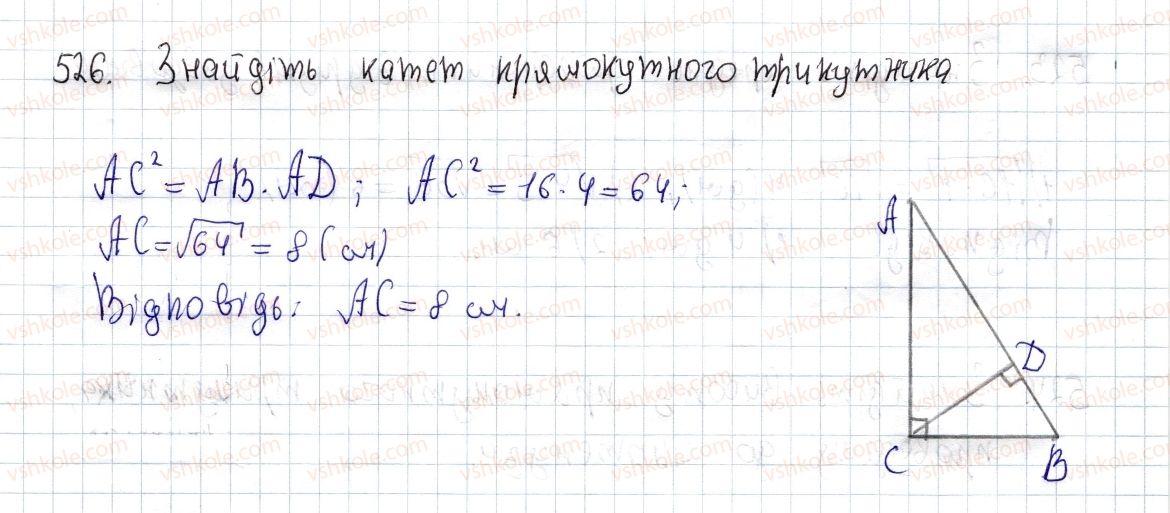 526. Знайдіть катет прямокутного трикутника
AC² = AB · AD; AC² = 16 · 4 = 64;
AC = √64 = 8 (см)
Відповідь: AC = 8 см.
A
D
C
B
vshkole.com